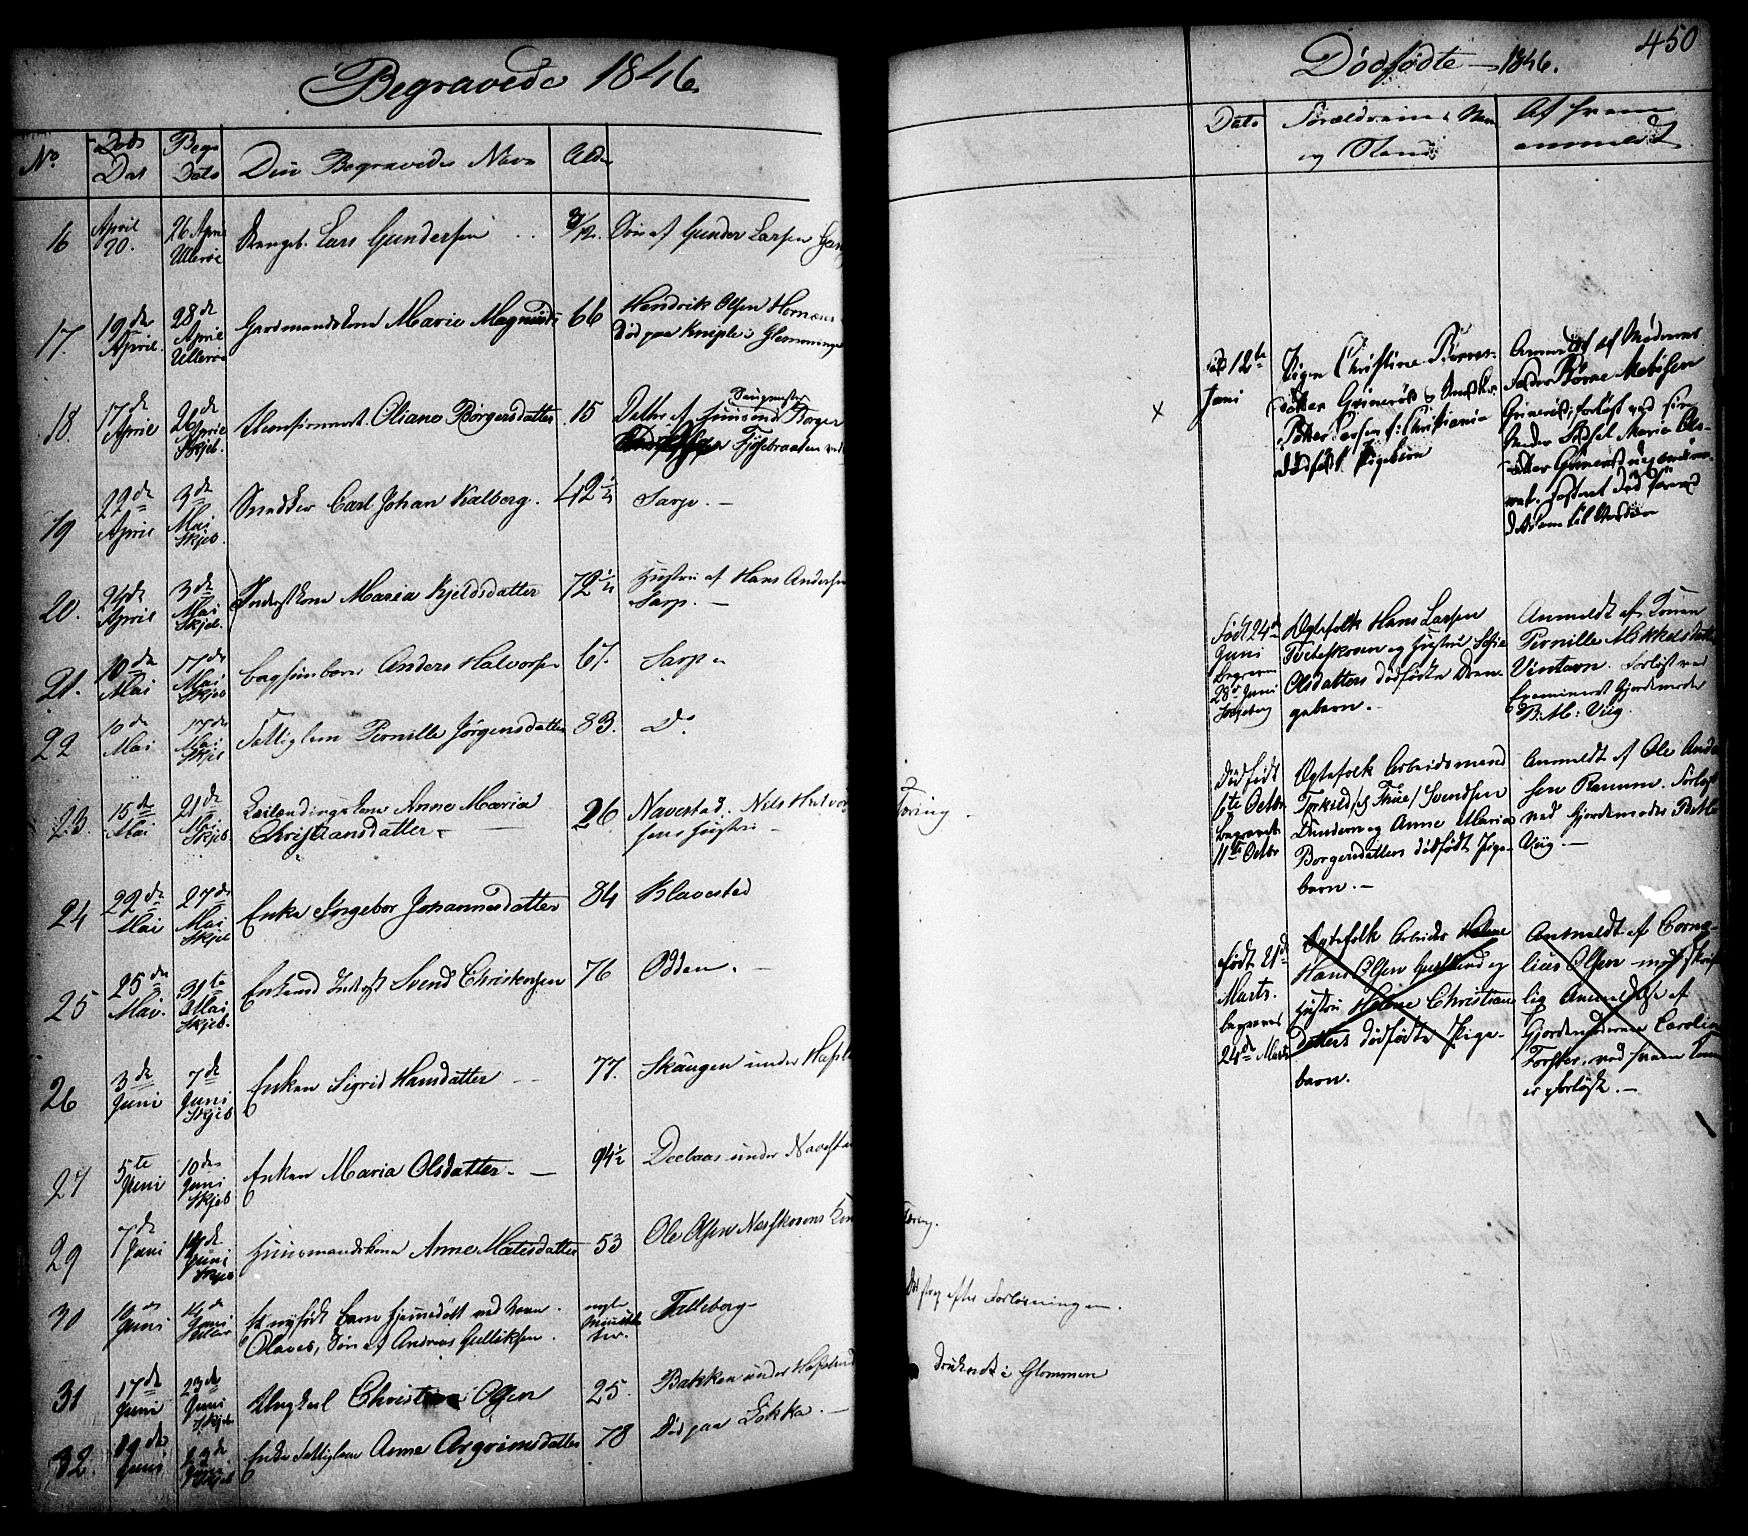 Begravede 1846.
No. Døds Dat Begr Dato Den Begravedes Navn Alder
16 April 20. 26 April Ullerøe Drengeb. Lars Gundersen 3/12. Søn af Gunder Larsen
17. 19de April. 28de April Ullerøe Gaardmandskone Marie Magnusd: 66 Hendrik Olsen Hornæs
Død paa Kniple i Glemminge
18. 17de April 26de April Skjeb. Confirmert. Oliane Børgersdatter 15 Datter af Huusmd. Børger
Fjøsebraaten ved
19 22de April 3de Mai Skjeb. Snedker Carl Johan Kalberg. 42 1/2 Sarp. —
20. 24de April 3de Mai Skjeb. Inderstkone Maria Kjeldsdatter 72 1/2 Hustru af Hans Andersen
Sarp. —
21. 10de Mai 17de Mai Skjeb Anders Halvorsen 67. Sarp
22 10de Mai 17de Mai Skjeb Fattiglem Pernille Jørgensdatter 83. Do
23. 15de Mai 21de Mai Skjeb Leilendingskone Anne Maria
Christiansdatter 26 Navestad. Nils Halvor
sens Hustru — Toring.
24 22de Mai 27de Mai Skjeb Enke Ingebor Johannesdatter 84 Klavestad
25 25de Mai. 31te Mai Skjeb. Enkemd Inderst Svend Christensen 76 Odden. —
26 3de Juni 7de Juni Skjeb Enken Sigrid Hansdatter — 77. Skaugen under Hafsl
27 5te Juni 10de Juni Skjeb Enken Maria Olsdatter. — 94 1/2 under Navestad
29 7de Juni 14de Juni Skjeb Huusmandskone Anne Matesdatter 53 Ole Olsen Næsskovens Kone
30 10de Juni 14de Juni Et nyfødt Barn hjemmedøbt ved Navn
Olaves, Søn af Andreas Gulliksen. nogle Minutter Talleberg — strax efter Forløsningen.
31 17de Juni 23de Juni Skjeb Ungkarl Christian Olsen 25. Bakken under Hafslund Druknet i Glommen
32. 19de Juni 23de Juni Skjeb Enke Fattiglem Anne Asgrimsdatter 78 Død paa Løkka. —
450
Dødfødte — 1846.
Dato Forældrenes Navn
og Stand Af hvem
anmeldt
x
12te
Juni
Pigen Christine Børres-
datter Grinerød & Snedker
Peter Larsen i Christiania
dødfødt Pigebarn
Anmeldt af Moderens
Fader Børre Matisen
Grinerød, forløst ved sin
Moder Sissel Maria Ols-
datter Grinerød
Født 24de
Juni
Begraven
28de Juni
Skjeberg
Ægtefolk Hans Larsen
Tveteskoven og Hustru Sofia
Olsdatters dødfødte Dren-
gebarn. —
Anmeldt af Konen
Pernille Mikkelsdatter
Vintavn. Forløst ved
Examineret Gjordemoder
B. M: Viig.
Dødfødt
6te Octbr
begravet
11te Octbr
Ægtefolk Arbeidsmand
Torkild Svendsen
Dundern og Anne Maria
Borgersdatters dødfødt Pige-
barn. —
Anmeldt af Ole Ander
sen Ramm. Forløst
ved Gjordemoder
Viig. —
Født 21de
Marts.
begraves
24de Marts
Ægtefolk Arbeider Helene
Hans Olsen Hustru og
Hustru Helene Christians
Datters dødfødte Pige-
barn.
Anmeldt af Corne-
lius Olsen med skrift-
lig Anmeldelse af
Gjordemoderen Caroline
Forster, ved hvem Konen
er forløst. —